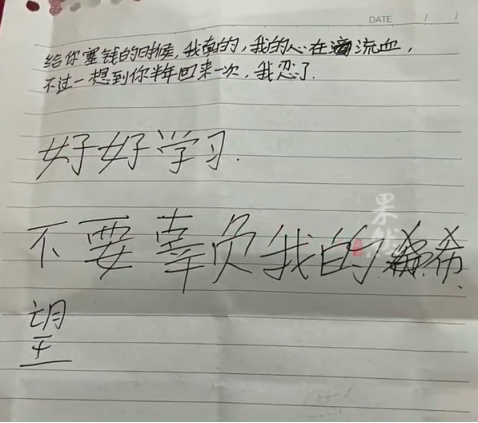 DATE / /
给你塞钱的时候，我真的，我的心在滴流血，
不过一想到你半年回来一次，我忍了.
好好学习.
不要辜负我的希
望